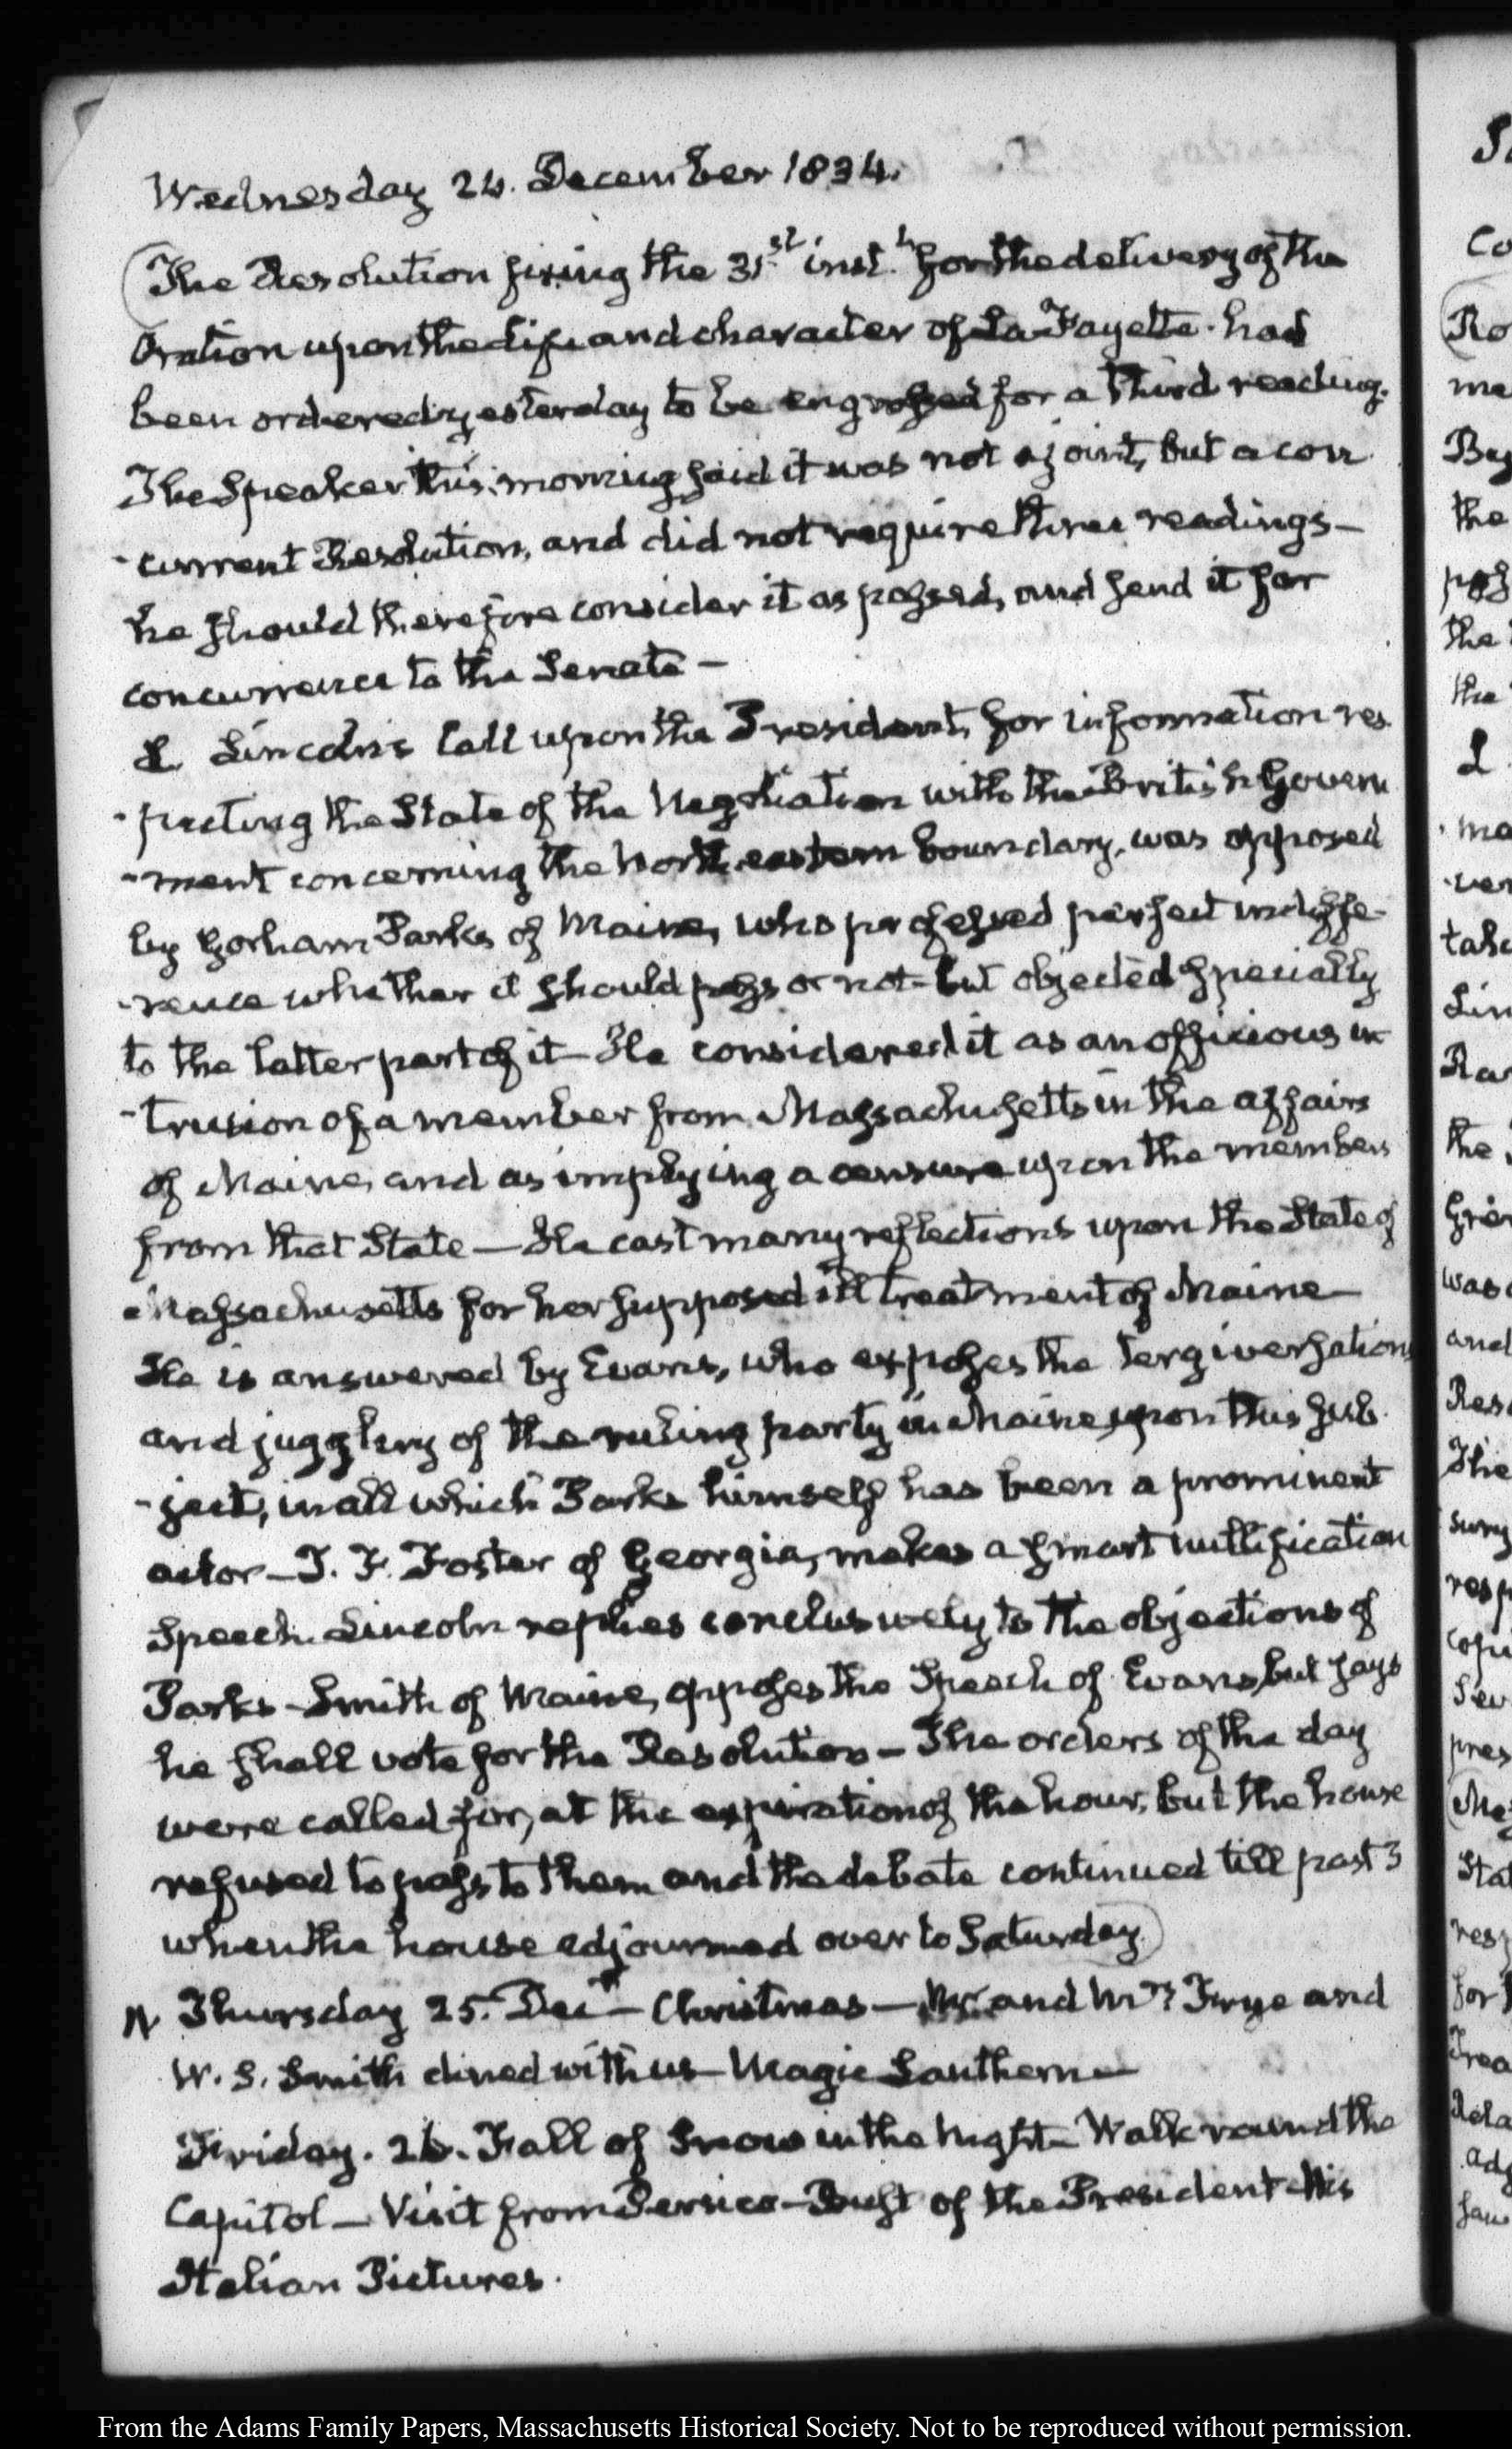 Wednesday 24. December 1834.
The Resolution fixing the 31st inst. for the delivery of the
Oration upon the life and character of La Fayette. had
been ordered yesterday to be engrossed for a third reading.
The Speaker this morning said it was not a joint, but a con
-current Resolution, and did not require three readings—
he should therefore consider it as passed, and send it for
concurrence to the Senate—
L. Lincoln's Call upon the President, for information res
-pecting the State of the Negotiation with the British Govern
-ment concerning the North eastern boundary, was opposed
by Gorham Parks of Maine, who professed perfect indiffe
-rence whether it should pass or not- but objected specially
to the latter part of it— He considered it as an officious in
-trusion of a member from Massachusetts in the affairs
of Maine, and as implying a censure upon the members
from that State— He cast many reflections upon the State of
Massachusetts for her supposed ill treatment of Maine—
He is answered by Evans, who exposes the tergiversations
and jugglery of the ruling party in Maine, upon this sub
-ject, in all which Parks himself has been a prominent
actor— T. F. Foster of Georgia, makes a smart nullification
Speech. Lincoln replies conclusively to the objections of
Parks- Smith of Maine, opposes the Speech of Evans, but says
he shall vote for the Resolution— The orders of the day
were called for, at the expiration of the hour, but the house
refused to pass to them and the debate continued till past 3
when the house adjourned over to Saturday.
Thursday 25. Decr— Christmas— Mr. and Mrs Frye and
W. S. Smith dined with us— Magic Lanthern—
Friday. 26. Fall of Snow in the Night— Walk round the
Capitol— Visit from Persico— Bust of the President His
Italian Pictures.
From the Adams Family Papers, Massachusetts Historical Society. Not to be reproduced without permission.